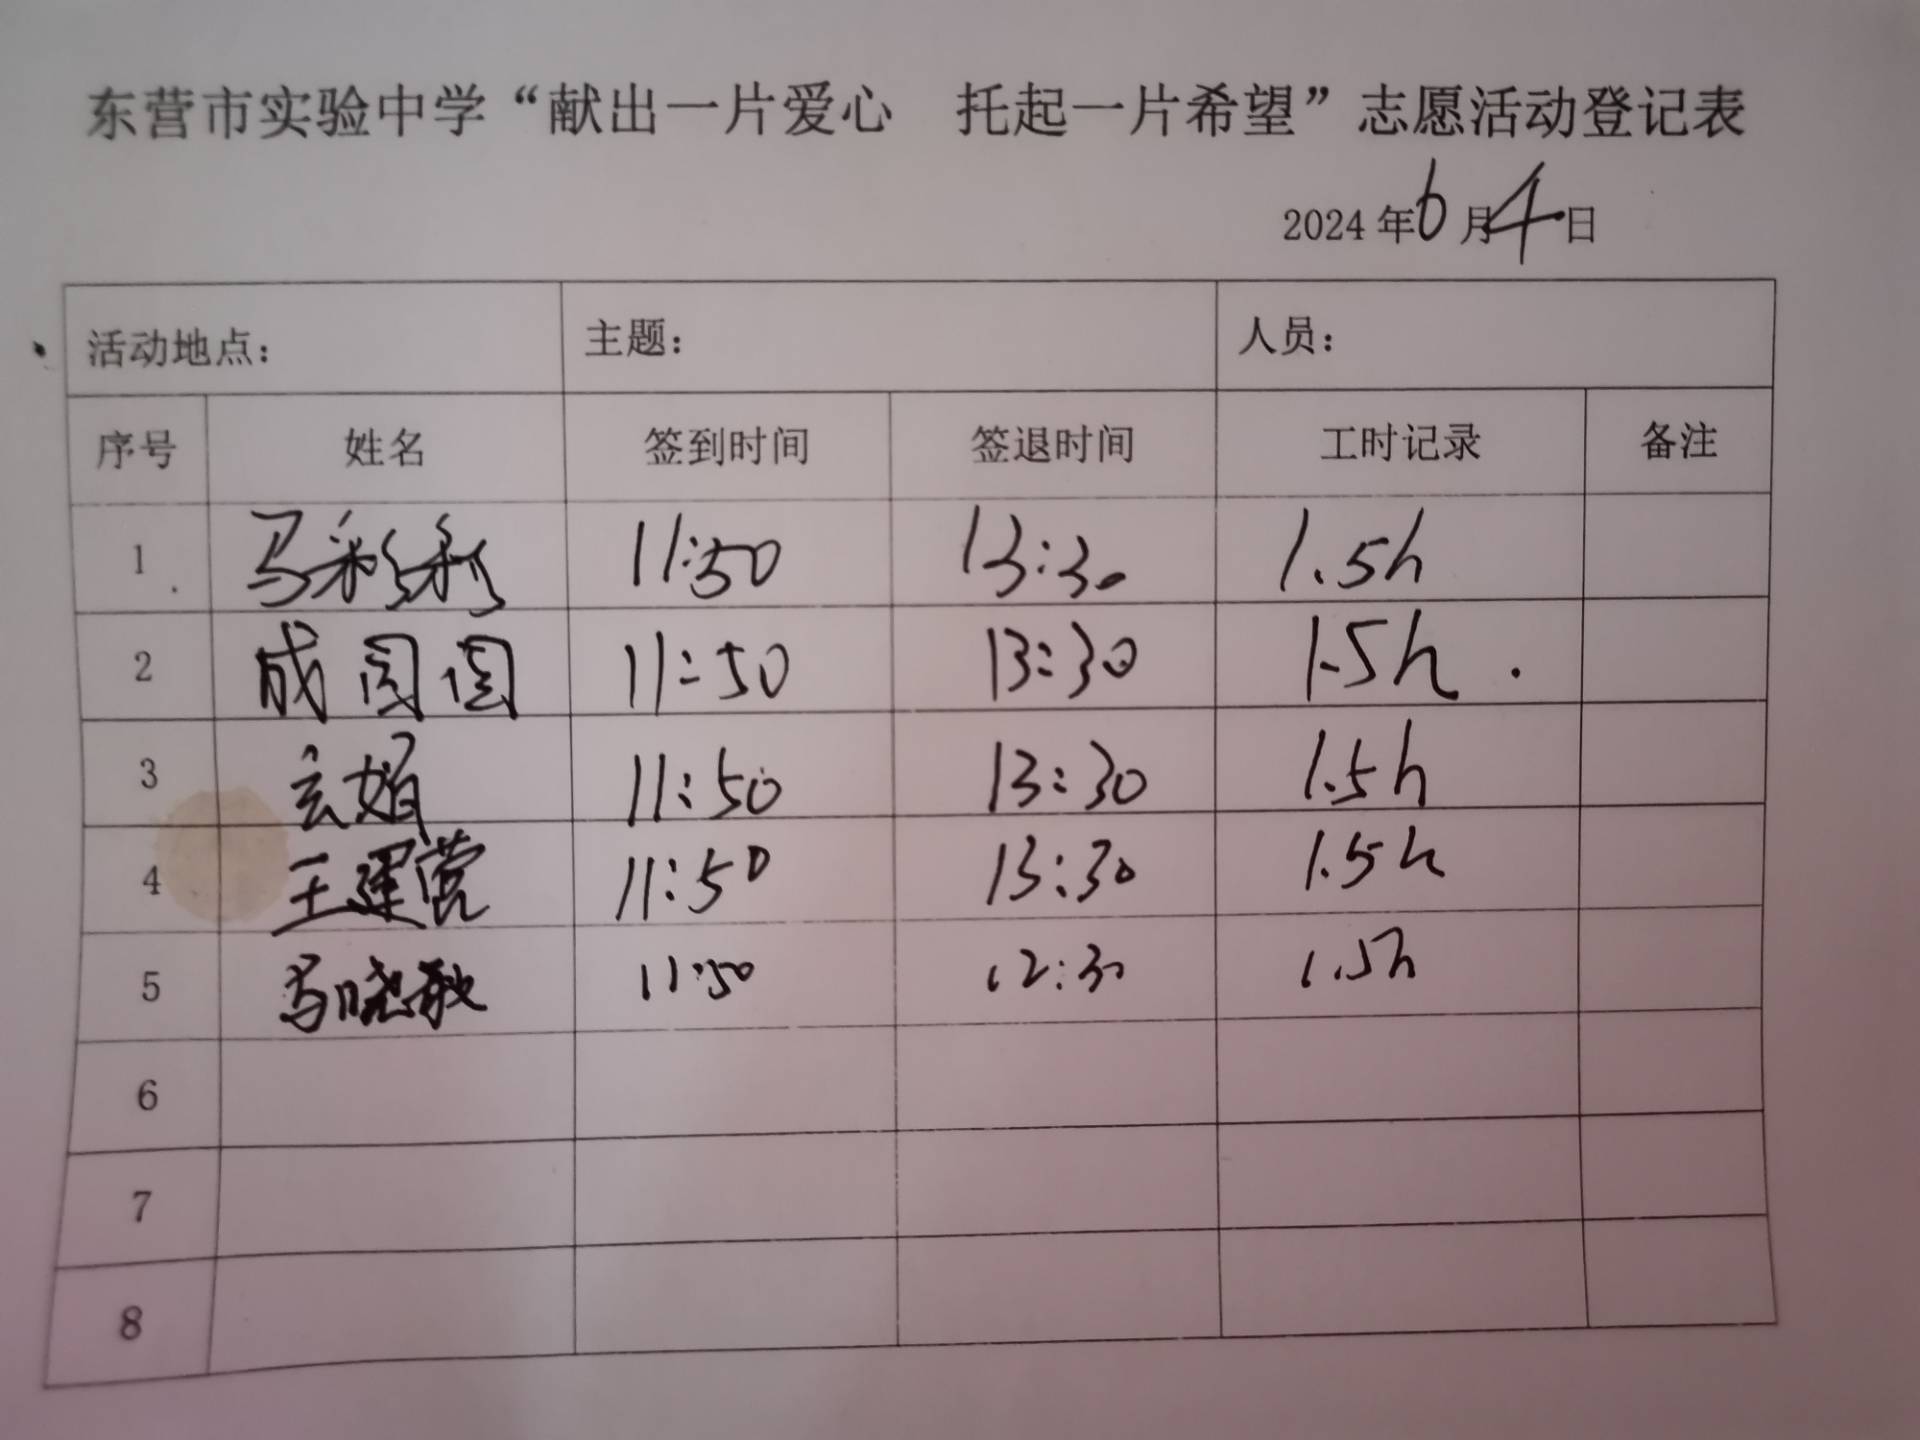 东营市实验中学“献出一片爱心 托起一片希望”志愿活动登记表
2024年6月4日
活动地点： 主题： 人员：
序号 姓名 签到时间 签退时间 工时记录 备注
1 马彩彩 11:50 13:30 1.5h
2 成闰闰 11:50 13:30 1.5h
3 玄娟 11:50 13:30 1.5h
4 王建营 11:50 13:30 1.5h
5 马晓敏 11:50 12:30 1.5h
6
7
8